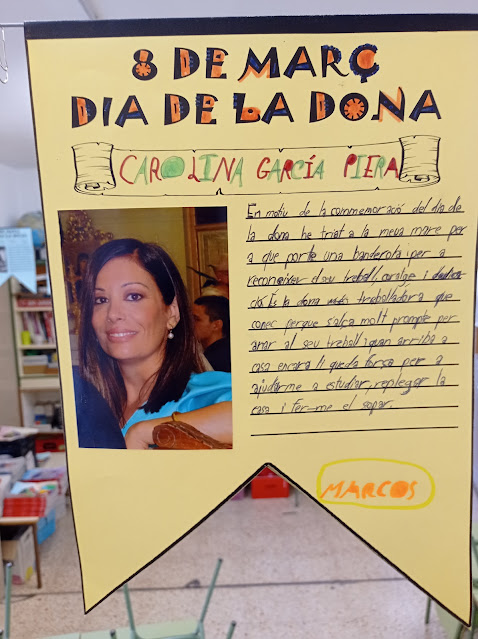 8 DE MARÇ
DIA DE LA DONA
CAROLINA GARCÍA PIERA
En motiu de la conmemoració del dia de
la dona he triat a la meua mare per
a que porte una banderola i per a
reconeixer el seu treball, coratge i dedica
ció. És la dona més treballadora que
conec perque s'alça molt prompte per
anar al seu treball i quan arriba a
casa encara li queda força per a
ajudarme a estudiar, replegar la
casa i fer-me el sopar.
MARCOS